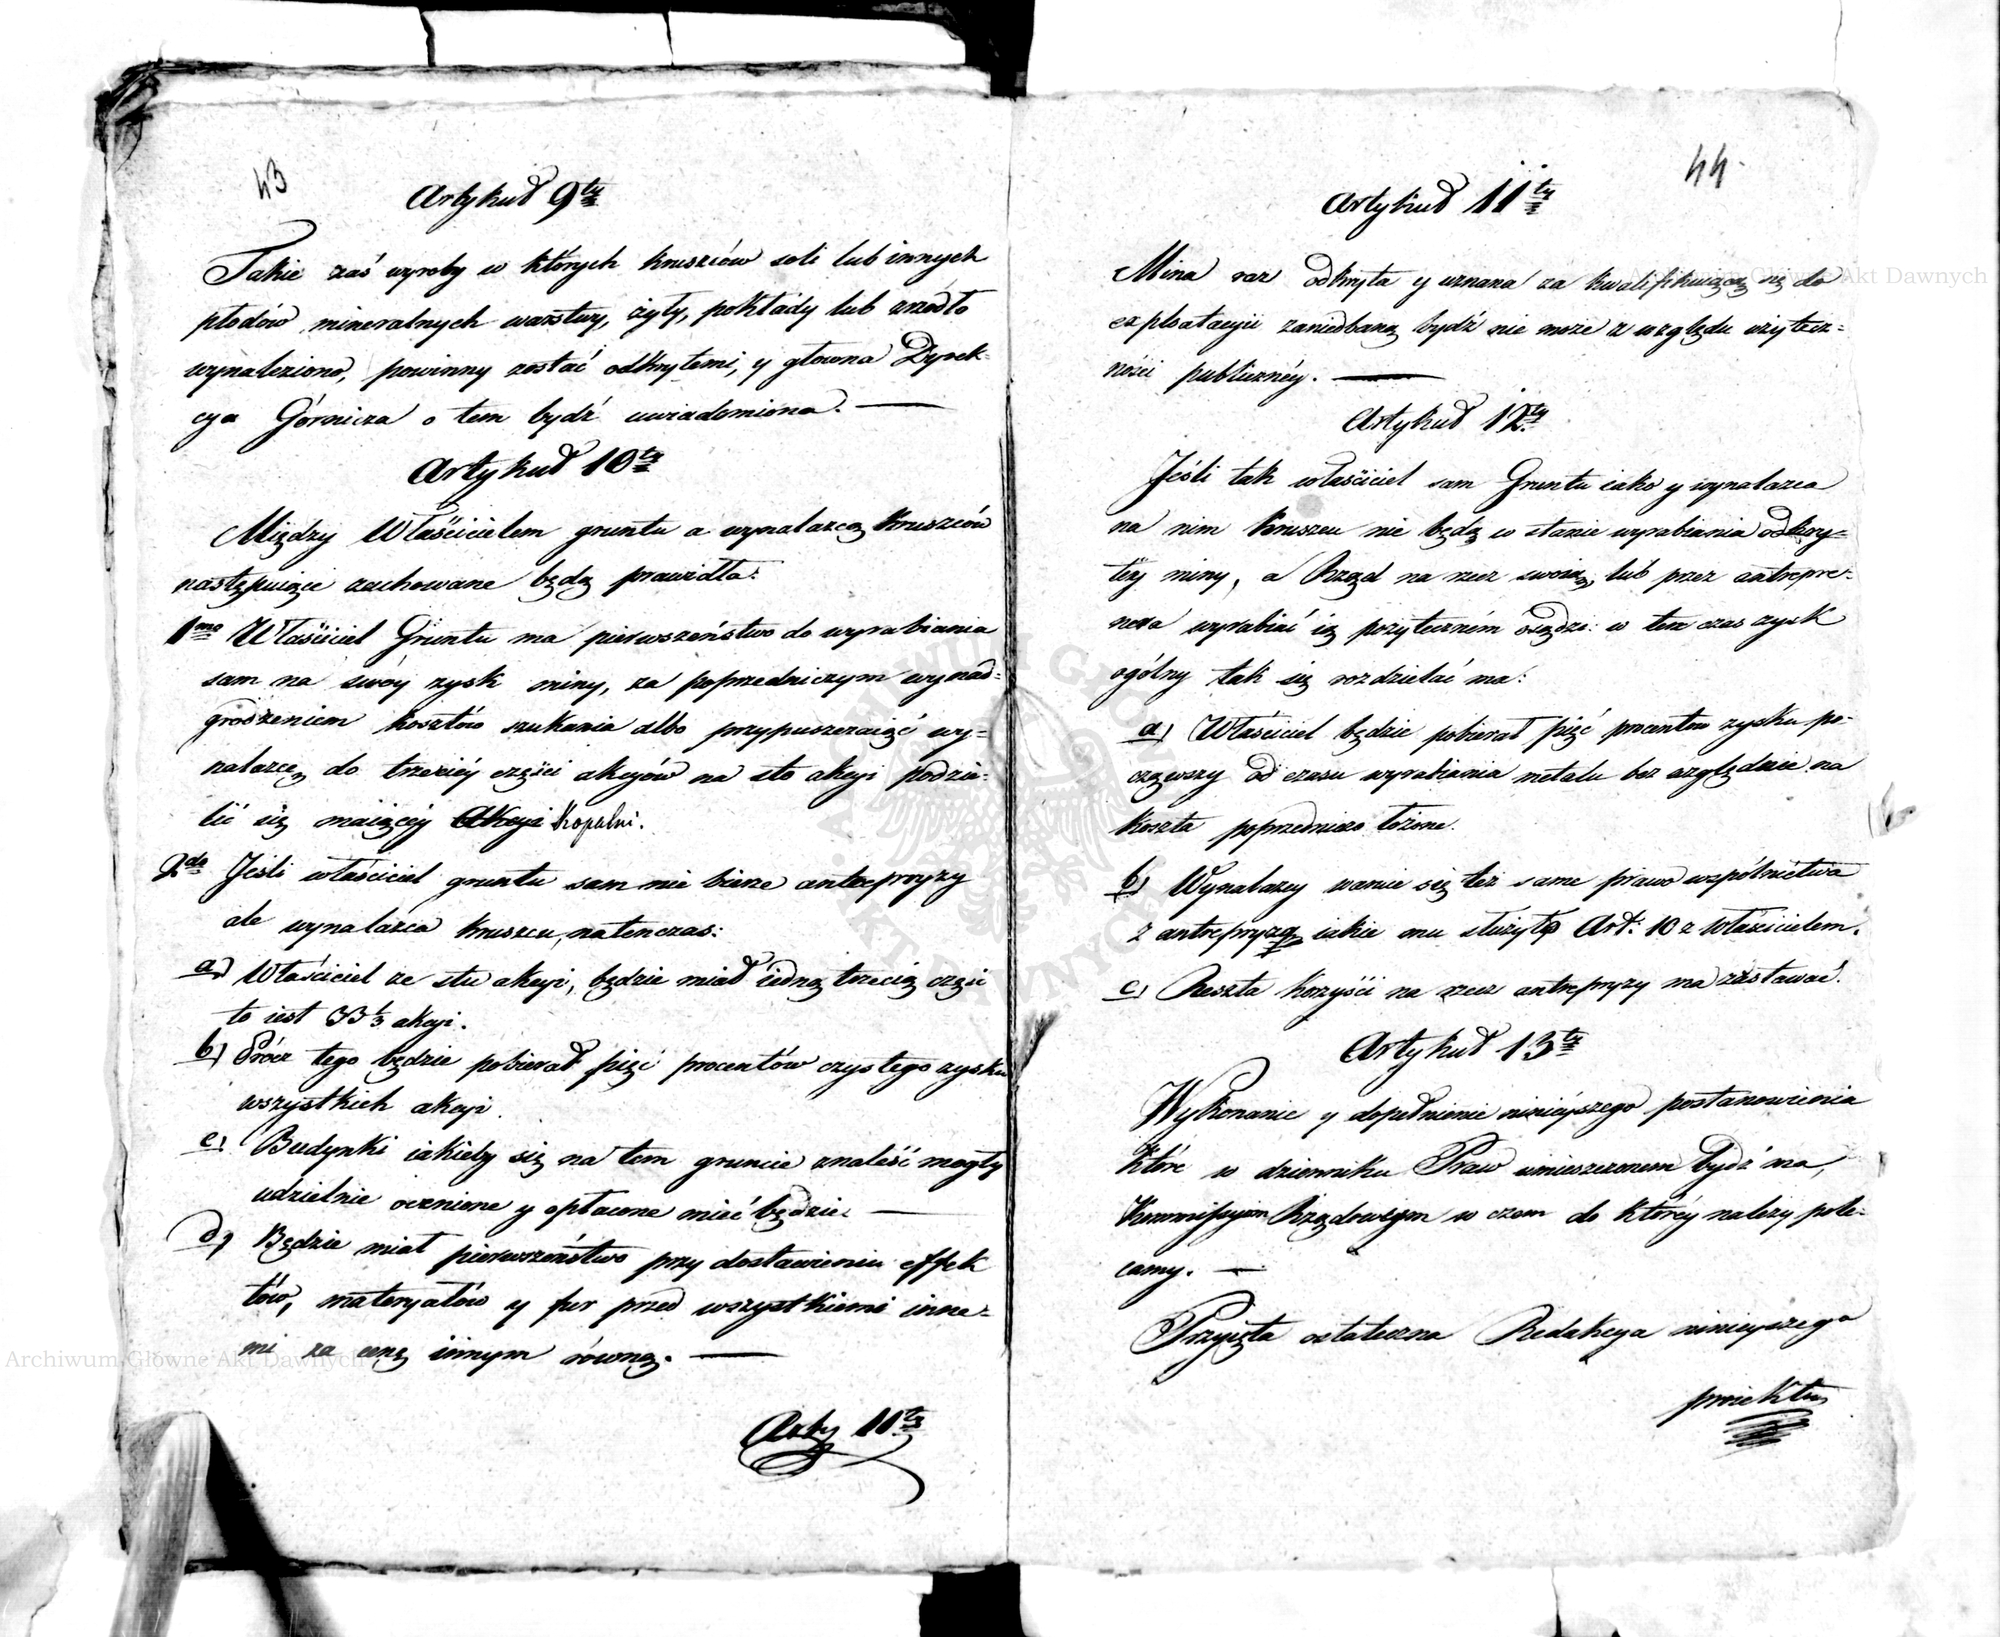 43
Artykuł 9ty
Takie zaś wyroby w których kruszców soli lub innych
płodów mineralnych warstwy, żyły, pokłady lub źrzódło
wynaleziono, powinny zostać odkrytemi, y głowna Dyrek-
cya Górnicza o tem bydź uwiadomiona. —
Artykuł 10ty
Między Właścicielem gruntu a wynalazcą kruszców
następuiące zachowane będą prawidła:
1mo Właściciel Gruntu ma pierwszeństwo do wyrabiania
sam na swóy zysk miny, za poprzedniczym wynad-
grodzeniem kosztów szukania albo przypuszczaiąc wy-
nalazcę do trzeciéy części akcyów na sto akcyi podzie-
lić się maiącéy Akcyi Kopalni.
2do Jeśli właściciel gruntu sam nie bierze antrepryzy
ale wynalazca kruszcu, natenczas:
a) Właściciel ze stu akcyi, będzie miał iedną trzecią częśc
to iest 33 1/3 akcyi.
b) Prócz tego będzie pobierał pięć procentów czystego zysku
wszystkich akcyi.
c) Budynki iakieby się na tem gruncie znaleść mogły
udzielnie ocenione y opłacone mieć będzie. —
d) Będzie miał pierwszeństwo przy dostawieniu effek
tów, materyałów y fur przed wszystkiemi inne-
mi za cenę innym równą. —
Arty 11ty
44.
Artykuł 11ty
Mina raz odkryta y uznana za kwalifikuiącą się do
exploatacyii zaniedbaną bydź nie może z względu użytecz-
ności publicznéy. —
Artykuł 12ty
Jeśli tak właściciel sam Gruntu iako y wynalazca
na nim kruszcu nie będą w stanie wyrabiania odkry-
téy miny, a Rząd na rzecz swoią, lub przez antrepre-
nera wyrabiać ią pozytecznem osądzi: w ten czas zysk
ogólny tak się rozdzielać ma:
a) Właściciel będzie pobierał pięć procentów zysku po-
cząwszy od czasu wyrabiania metalu bez względnie na
koszta poprzedniczo łożone.
b) Wynalazcy warue się też same prawo wspólnictwa
z antrepryzą iakie mu służyło Art: 10 z Właścicielem.
c) Reszta korzyści na rzecz antrepryzy ma zostawać.
Artykuł 13ty
Wykonanie y dopełnienie ninieyszego postanowienia
Które w dzienniku Praw umieszczonem bydź ma,
Kommissyom Rządowym w czem do któréy należy pole-
camy. —
Przyięta ostateczna Redakcya ninieyszego
proiektu
Archiwum Główne Akt Dawnych
Archiwum Główne Akt Dawnych